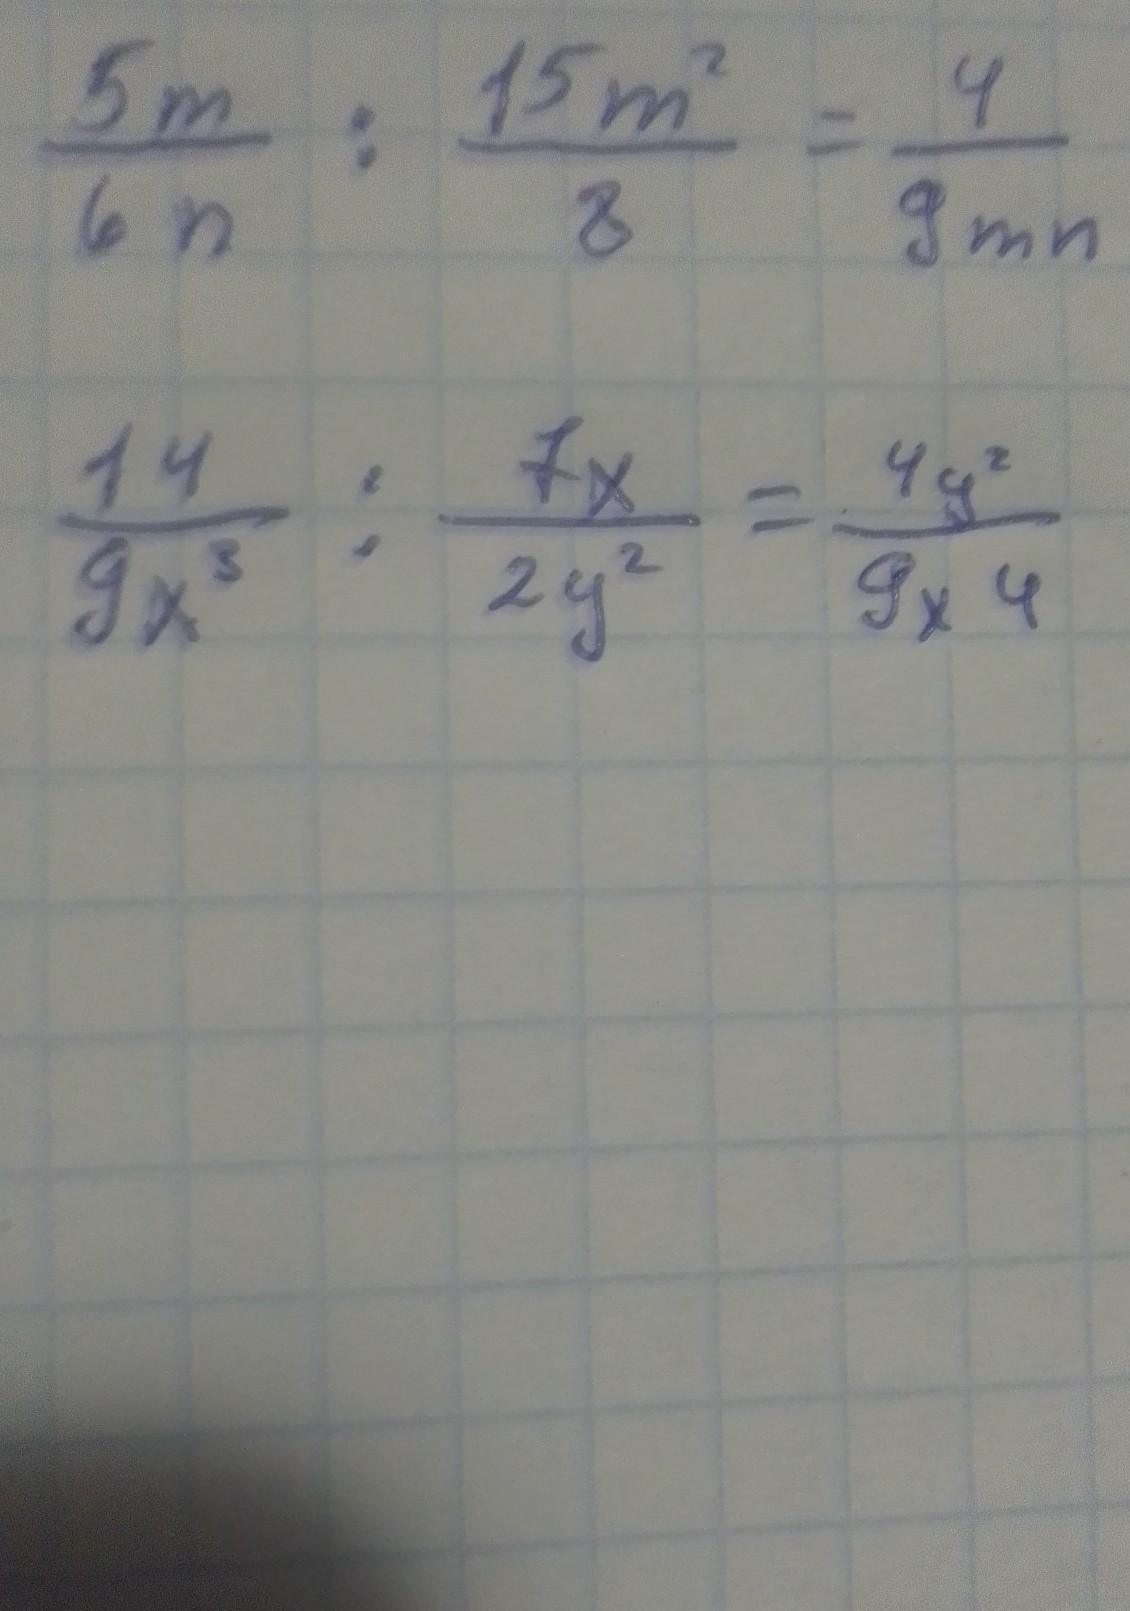 5m/6n : 15m²/8 = 4/9mn
14/9x³ : 7x/2y² = 4y²/9x4